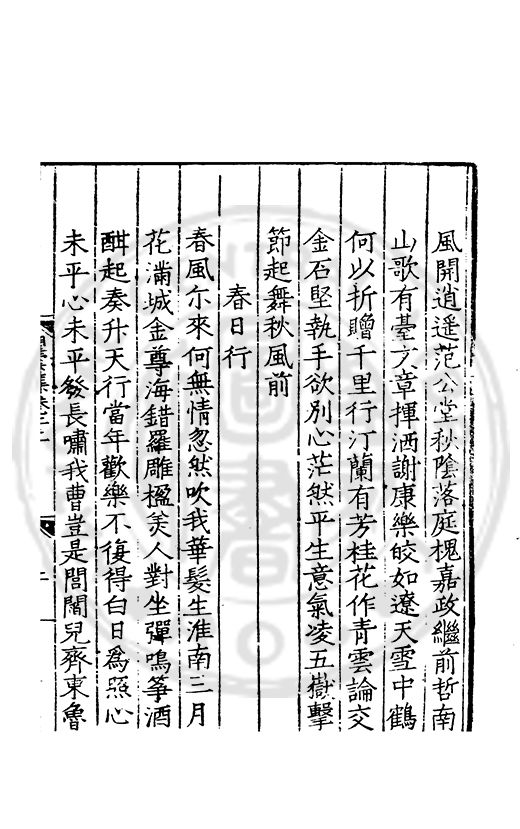 風開逍遥范公堂秋陰落庭槐嘉政繼前哲南
山歌有臺文章揮洒謝康樂皎如遼天雪中鶴
何以折贈千里行汀蘭有芳桂花作青雲論交
金石堅執手欲別心茫然平生意氣凌五嶽擊
節起舞秋風前
春日行
春風尓來何無情忽然吹我華髮生淮南三月
花滿城金尊海錯羅雕楹美人對坐彈鳴筝酒
酣起奏升天行當年歡樂不復得白日為照心
未平心未平發長嘯我曹豈是閭閻兒齊東魯